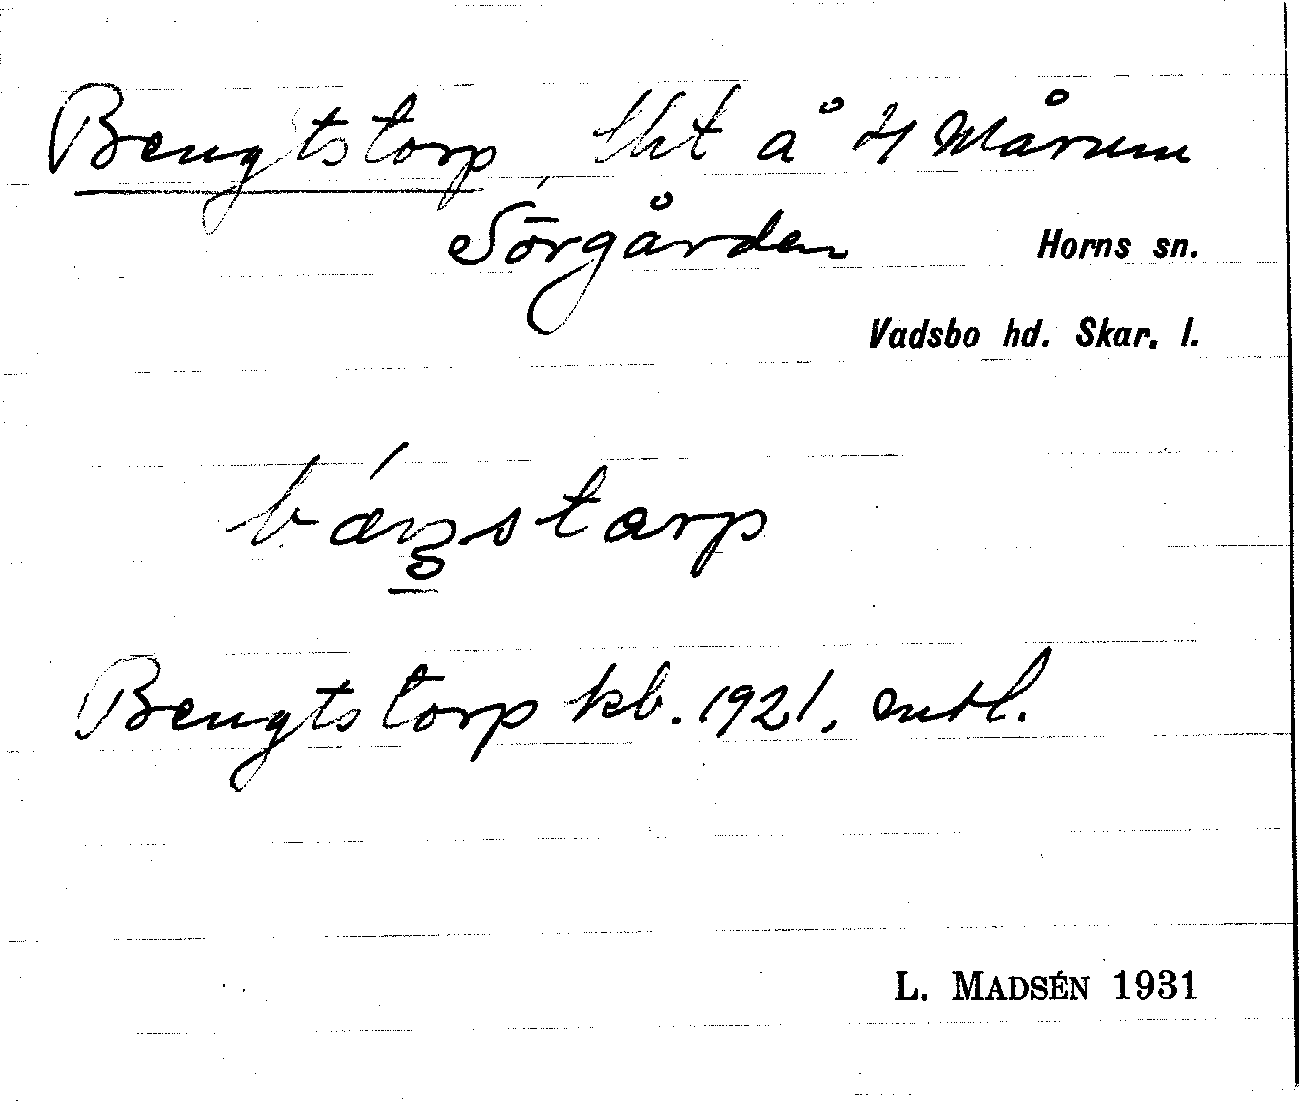 Bengtstorp, lht å 4 Mårum
Sörgården Horns sn.
Vadsbo hd. Skar. l.
bæŋstarp
Bengtstorp kb. 1921, entl.
L. MADSÉN 1931